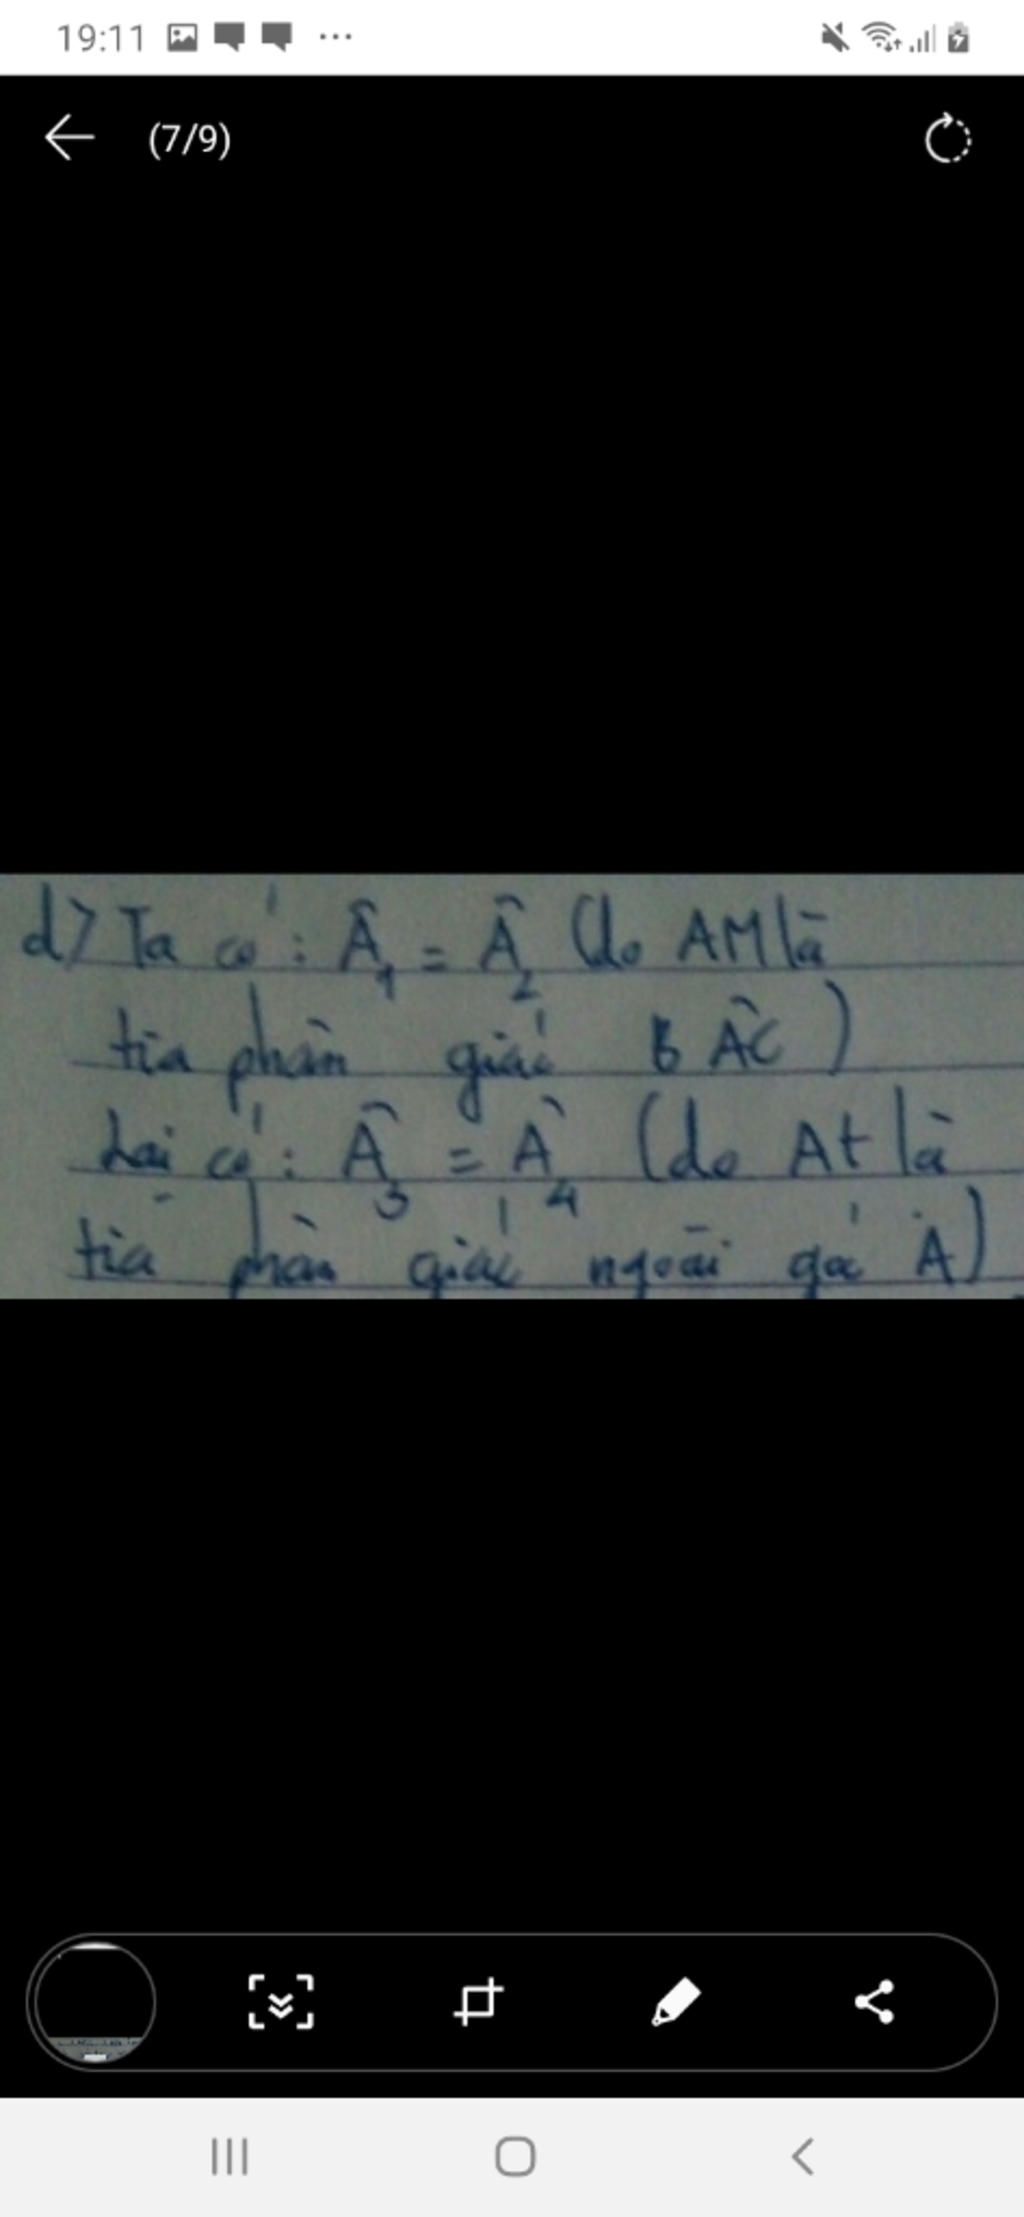 19:11
(7/9)
d> Ta có: Â₁ = Â₂ (do AM là
tia phân giác BÂC)
Lại có: Â₃ = Â₄ (do At là
tia phân giác ngoài góc A)